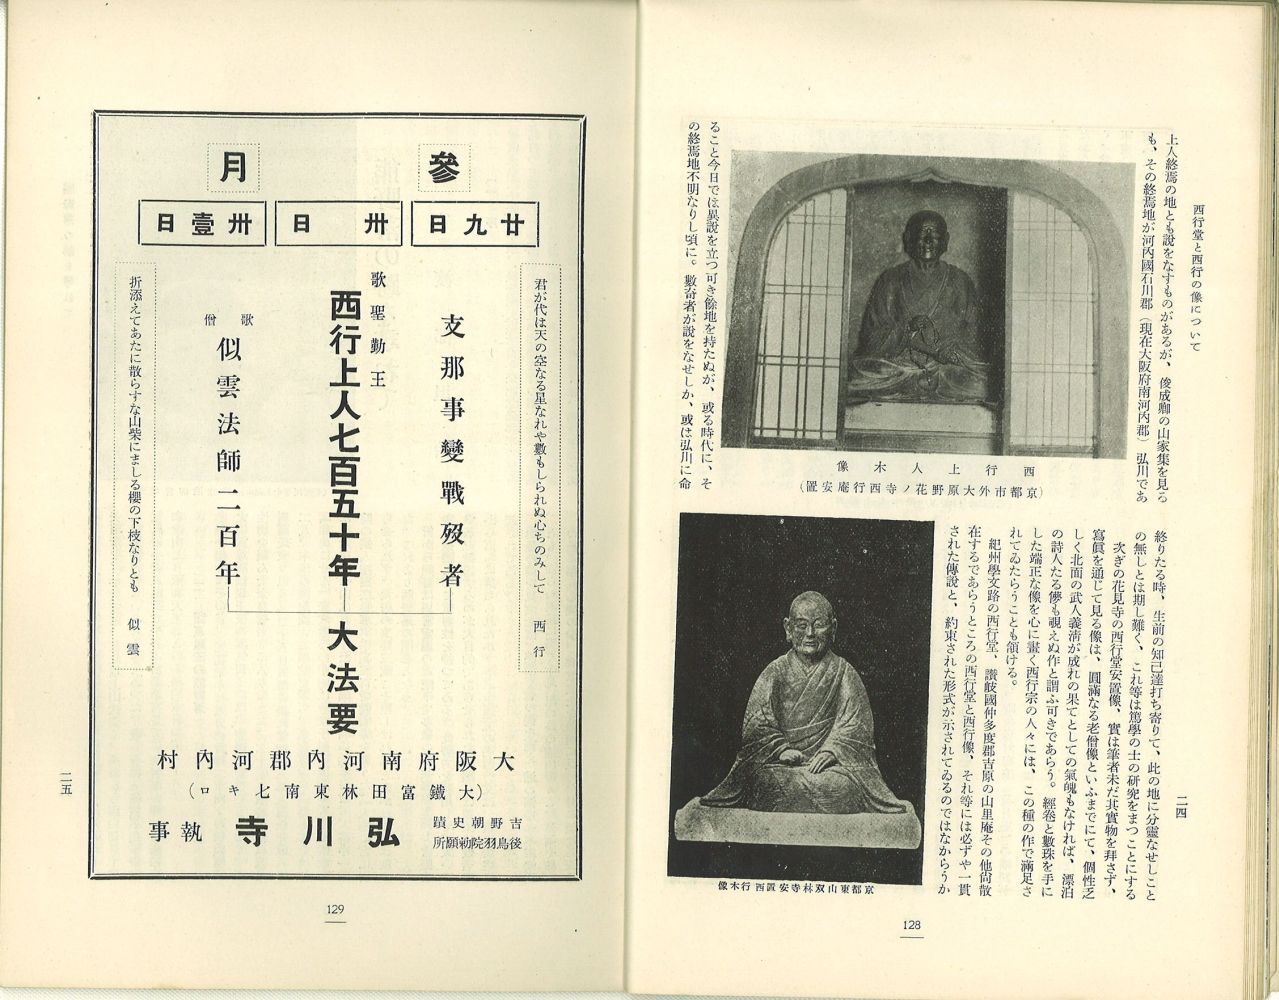 西行堂と西行の像について
二四
上人終焉の地とも說をなすものがあるが、俊成卿の山家集を見る
も、その終焉地が河內國石川郡（現在大阪府南河內郡）弘川であ
西行上人木像
（京都市外大原野花ノ寺西行庵安置）
ること今日では異說を立つ可き餘地を持たぬが、或る時代に、そ
の終焉地不明なりし頃に。數寄者が說をなせしか、或は弘川に命
終りたる時、生前の知己達打ち寄りて、此の地に分靈なせしこと
の無しとは期し難く、これ等は篤學の士の研究をまつことにする
次ぎの花見寺の西行堂安置像、實は筆者未だ其實物を拜さず、
寫眞を通じて見る像は、圓滿なる老僧像といふまでにて、個性乏
しく北面の武人義淸が成れの果てとしての氣魄もなければ、漂泊
の詩人たる儚も覗えぬ作と謂ふ可きであらう。經卷と數珠を手に
した端正な像を心に畫く西行宗の人々には、この種の作で滿足さ
れてゐたらうことも頷ける。
紀州學文路の西行堂、讃岐國仲多度郡吉原の山里庵その他尙散
在するであらうところの西行堂と西行像、それ等には必ずや一貫
された傳說と、約束された形式が示されてゐるのではなからうか
京都東山双林寺安置西行木像
128
參月
廿九日
卅日
卅壹日
君が代は天の空なる星なれや數もしられぬ心ちのみして　西行
支那事變戰歿者
歌聖勤王
西行上人七百五十年
歌僧
似雲法師二百年
大法要
折添えてあたに散らすな山柴にまじる櫻の下枝なりとも　似雲
大阪府南河內郡河內村
（大鐵富田林東南七キロ）
吉野朝史蹟
後鳥羽院勅願所
弘川寺
執事
二五
129